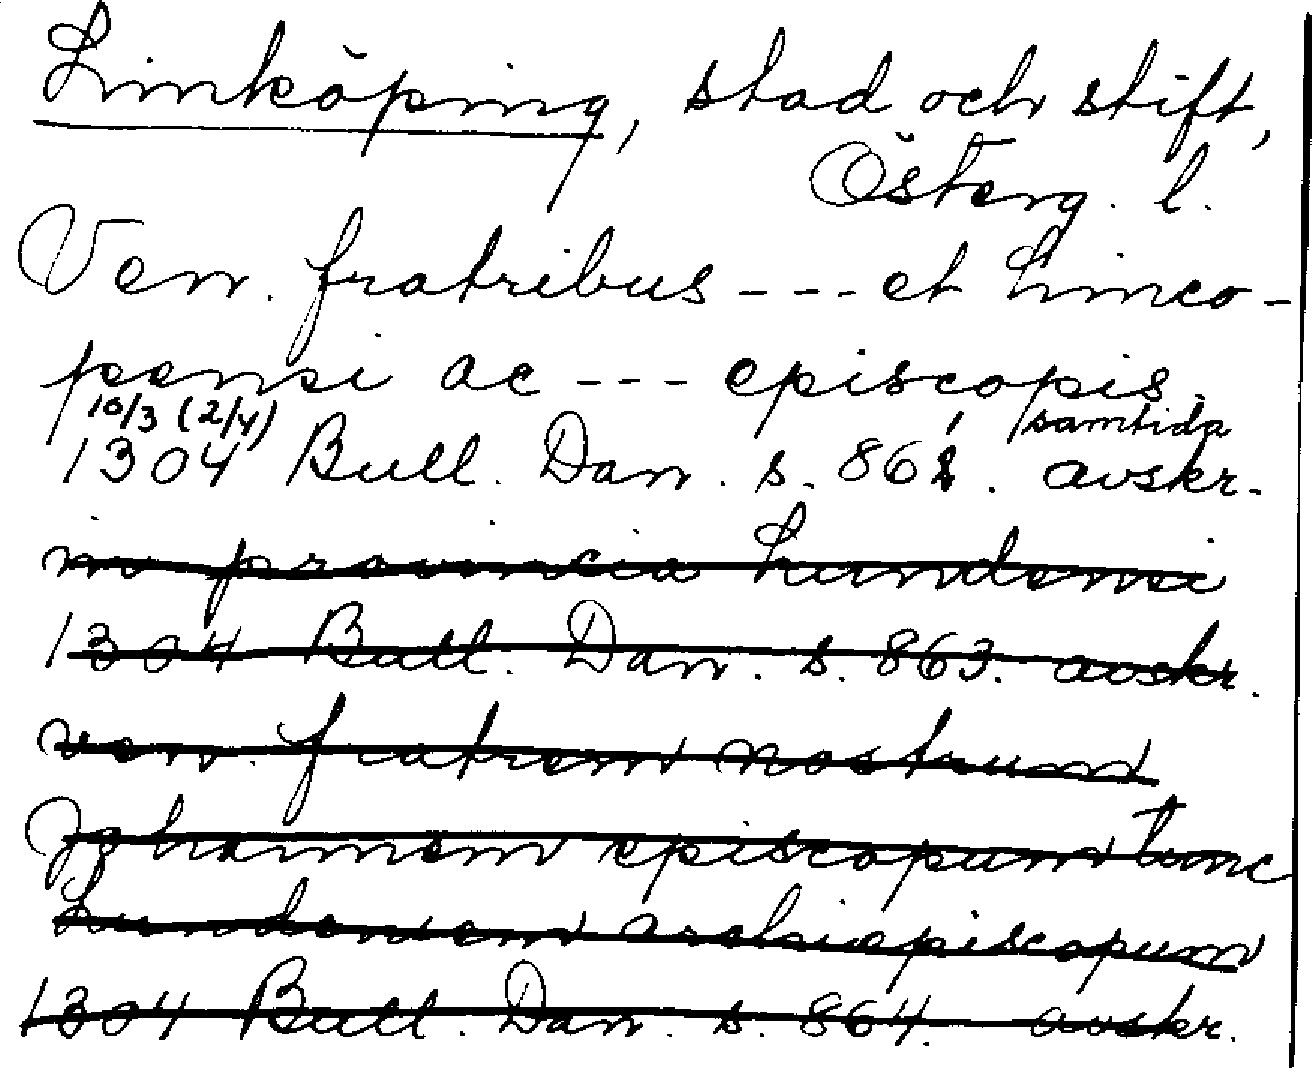 Linköping, stad och stift,
Österg. l.
Ven. fratribus --- et Linco-
pensi ac --- episcopis.
10/3 (2/4) samtida
1304 Bull. Dan. s. 861. avskr.
in provincia Lundensi
1304 Bull. Dan. s. 863. avskr.
ven. fratrem nostrum
Johannem episcopum tunc
Lundensem archiepiscopum
1304 Bull. Dan. s. 864. avskr.